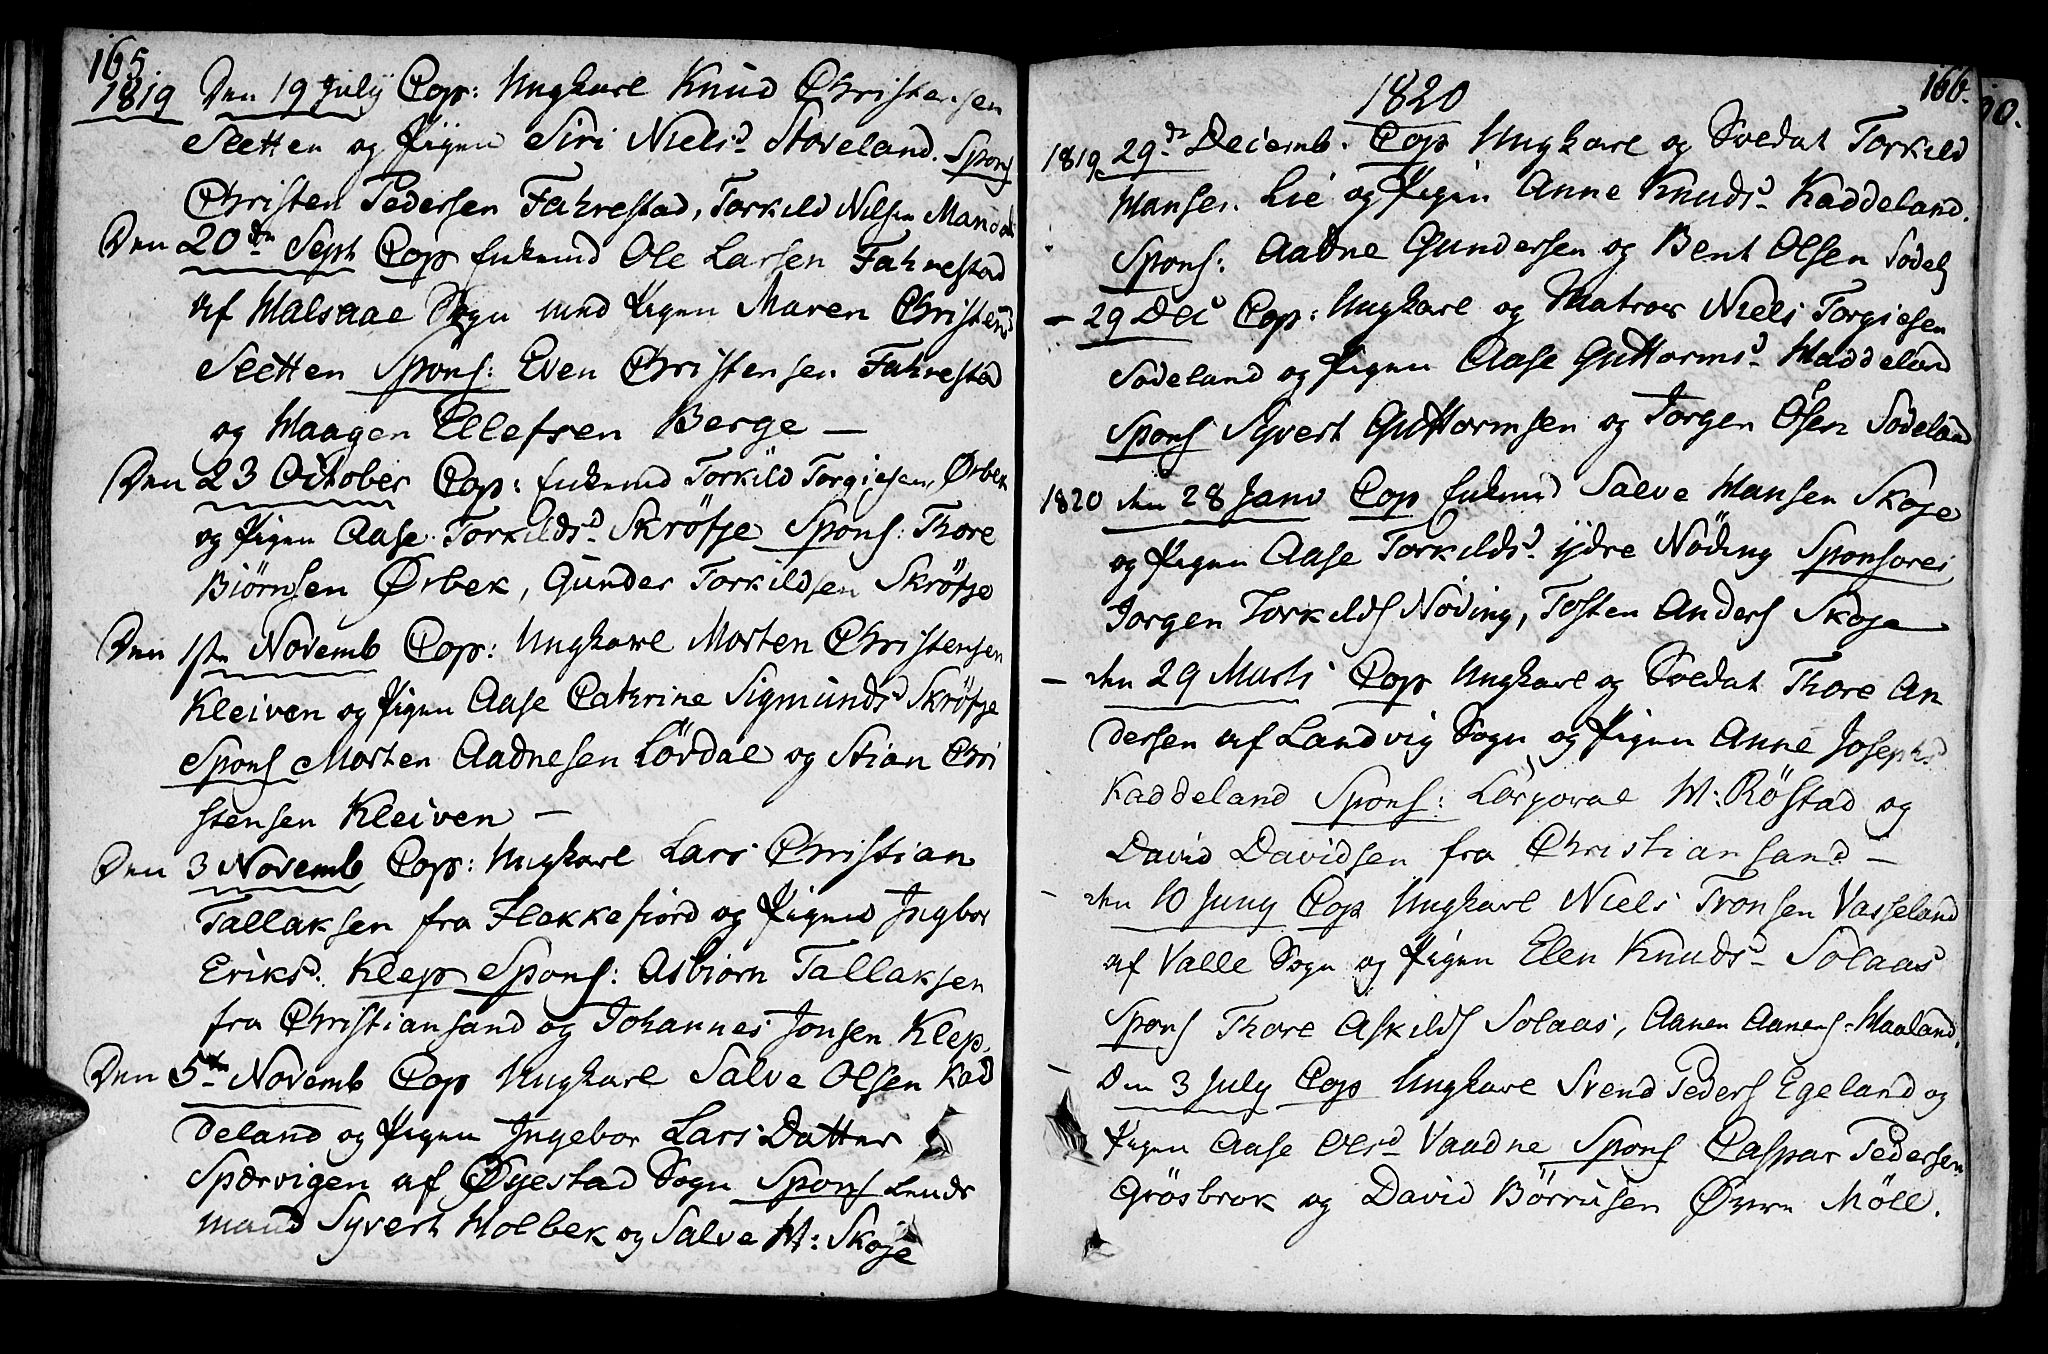 165.
1819 Den 19 July Cop: Ungkarl Knud Christensen
Sletten og Pigen Siri Nielsd. Stoveland. Spons
Christen Pedersen Fahrestad, Torkild Nilsen Mandal
Den 20de Sept Cop Enkemd Ole Larsen Fahrestad
af Halsaae Sogn med Pigen Maren Christensd
Sletten Spons: Even Christensen Fahrestad
og Haagen Ellefsen Berge —
Den 23 October Cop: Enkemd Torkild Torgiesen Ørbek
og Pigen Aase Torkildsd. Skröfje Spons: Thore
Biørnsen Ørbek, Gunder Torkildsen Skröfje
Den 1ste Novemb Cop: Ungkarl Morten Christensen
Kleiven og Pigen Aase Cathrine Sigmundsd Skröfje
Spons Morten Aadnesen Lördal og Stian Chri
stensen Kleiven —
Den 3 Novemb Cop: Ungkarl Lars Christian
Tallaksen fra Flekkefiord og Pigen Ingbor
Eriksd. Klep Spons: Asbiørn Tallaksen
fra Christiansand og Johannes Jonsen Klep.
Den 5te Novemb Cop Ungkarl Salve Olsen Kad
deland og Pigen Ingebor Lars Datter
Spærvigen af Øyestad Sogn Spons Lends
mand Syvert Holbek og Salve H: Skoje
1820
166.
1819 29de Decemb. Cop Ungkarl og Soldat Torkild
Hansen Lie og Pigen Anne Knudsd. Kaddeland.
Spons: Aadne Gundersen og Bent Olsen Sodel
— 29 Dec Cop: Ungkarl og Matros Niels Torgiesen
Sodeland og Pigen Aase Guttormsd. Haddeland
Spons Syvert Guttormsen og Jorgen Olsen Sodeland
1820 den 28 Janv Cop Enkemd Salve Hansen Skoje
og Pigen Aase Torkildsd. ydre Nöding Sponsores
Jorgen Torkilds Nöding, Tosten Anders Skoje
— den 29 Marts Cop Ungkarl og Soldat Thore An
dersen af Landvig Sogn og Pigen Anne Josephd.
Kaddeland Spons: H: Röstad og
David Davidsen fra Christiansand —
- den 10 Juny Cop Ungkarl Niels Tronsen Vasseland
af Valle Sogn og Pigen Elen Knudsd. Solaas
Spons Thore Askilds Solaas, Aanen Aanens Haaland.
— Den 3 July Cop Ungkarl Svend Peders Egeland og
Pigen Aase Olsd. Vaadne Spons Caspar Pedersen
Grösbrok og David Börrusen Øvre Möll.